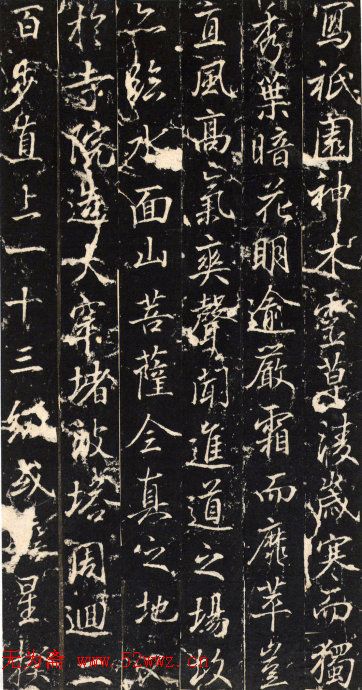 寫祇園神木靈草凌歲寒而獨
秀葉暗花明逾嚴霜而靡萃豈
直風高氣爽聲聞進道之場故
亦臨水面山菩薩全真之地
於寺院造大窣堵坡塔周迴二
百步直上一十三級或星揆
无为斋 www.52wwz.cn